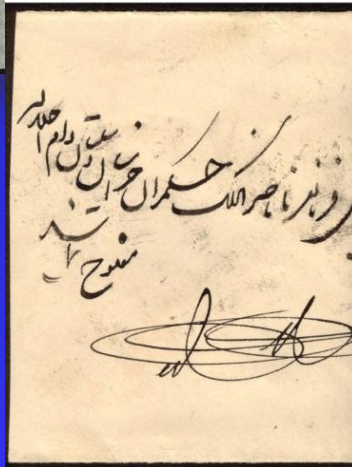 فرزند ناصرالملک حکمران خراسان و سیستان دام اجلاله
مفتوح نمایند